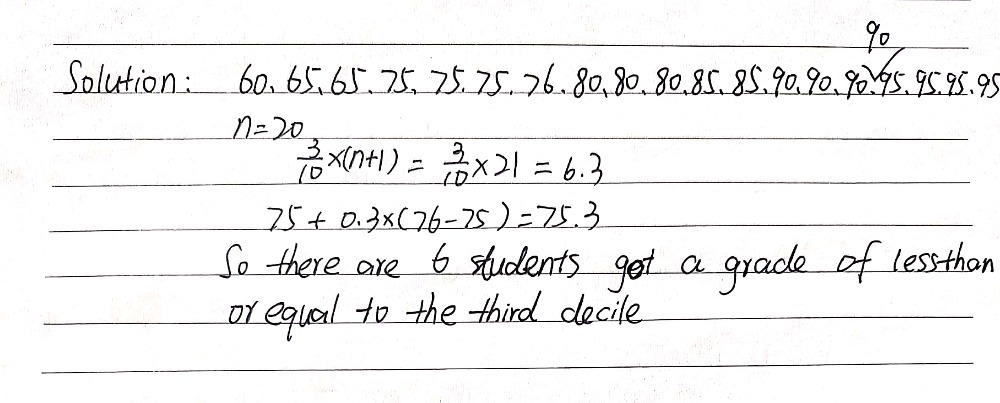 90
Solution: 60, 65, 65, 75, 75, 75, 76, 80, 80, 80, 85, 85, 90, 90, 90, 95, 95, 95, 95
n=20
3/10 ×(n+1) = 3/10 ×21 = 6.3
75 + 0.3×(76-75)=75.3
So there are 6 students got a grade of less than
or equal to the third decile